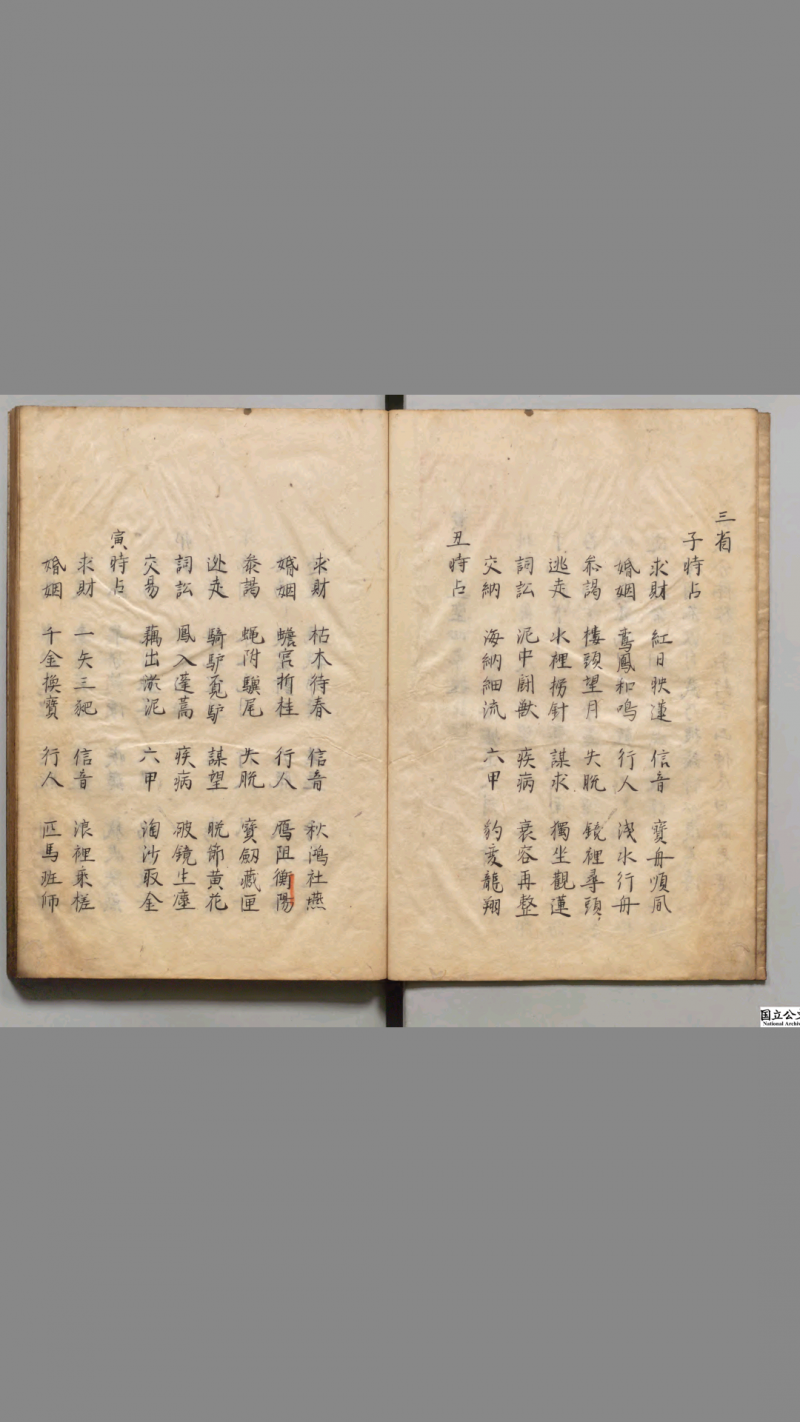 三省
子時占
求財 紅日映蓮 信音 寶舟順風
婚姻 鸞鳳和鳴 行人 淺水行舟
叅謁 樓頭望月 失脫 鏡裡尋頭
逃走 水裡撈針 謀求 獨坐觀蓮
詞訟 泥中鬪獸 疾病 衰容再整
交納 海納細流 六甲 豹变龍翔
丑時占
求財 枯木待春 信音 秋鴻社燕
婚姻 蟾宮折桂 行人 鴈阻衡陽
叅謁 蝇附驥尾 失脫 寶劔藏匣
逃走 騎馿覓馿 謀望 脫節黄花
詞訟 鳳入蓬蒿 疾病 破鏡生塵
交易 藕出淤泥 六甲 淘沙取金
寅時占
求財 一矢三豝 信音 浪裡乘槎
婚姻 千金換寶 行人 匹馬班師
国立公文
National Archiv